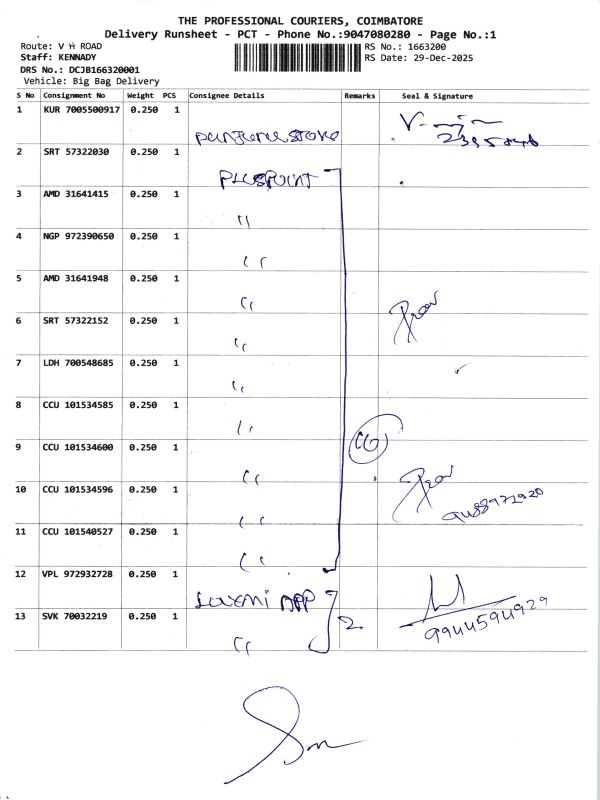 THE PROFESSIONAL COURIERS, COIMBATORE
Delivery Runsheet - PCT - Phone No.:9047080280 - Page No.:1
Route: V H ROAD
RS No.: 1663200
Staff: KENNADY
RS Date: 29-Dec-2025
DRS No.: DCJB166320001
Vehicle: Big Bag Delivery
S No Consignment No Weight PCS Consignee Details Remarks Seal & Signature
1 KUR 7005500917 0.250 1
2 SRT 57322030 0.250 1 PLUSPOINT
3 AMD 31641415 0.250 1 "
4 NGP 972390650 0.250 1 "
5 AMD 31641948 0.250 1 "
6 SRT 57322152 0.250 1 "
7 LDH 700548685 0.250 1 "
8 CCU 101534585 0.250 1 "
9 CCU 101534600 0.250 1 "
10 CCU 101534596 0.250 1 "
11 CCU 101540527 0.250 1 "
12 VPL 972932728 0.250 1 Laxmi APP 9944594929
13 SVK 70032219 0.250 1 " 2